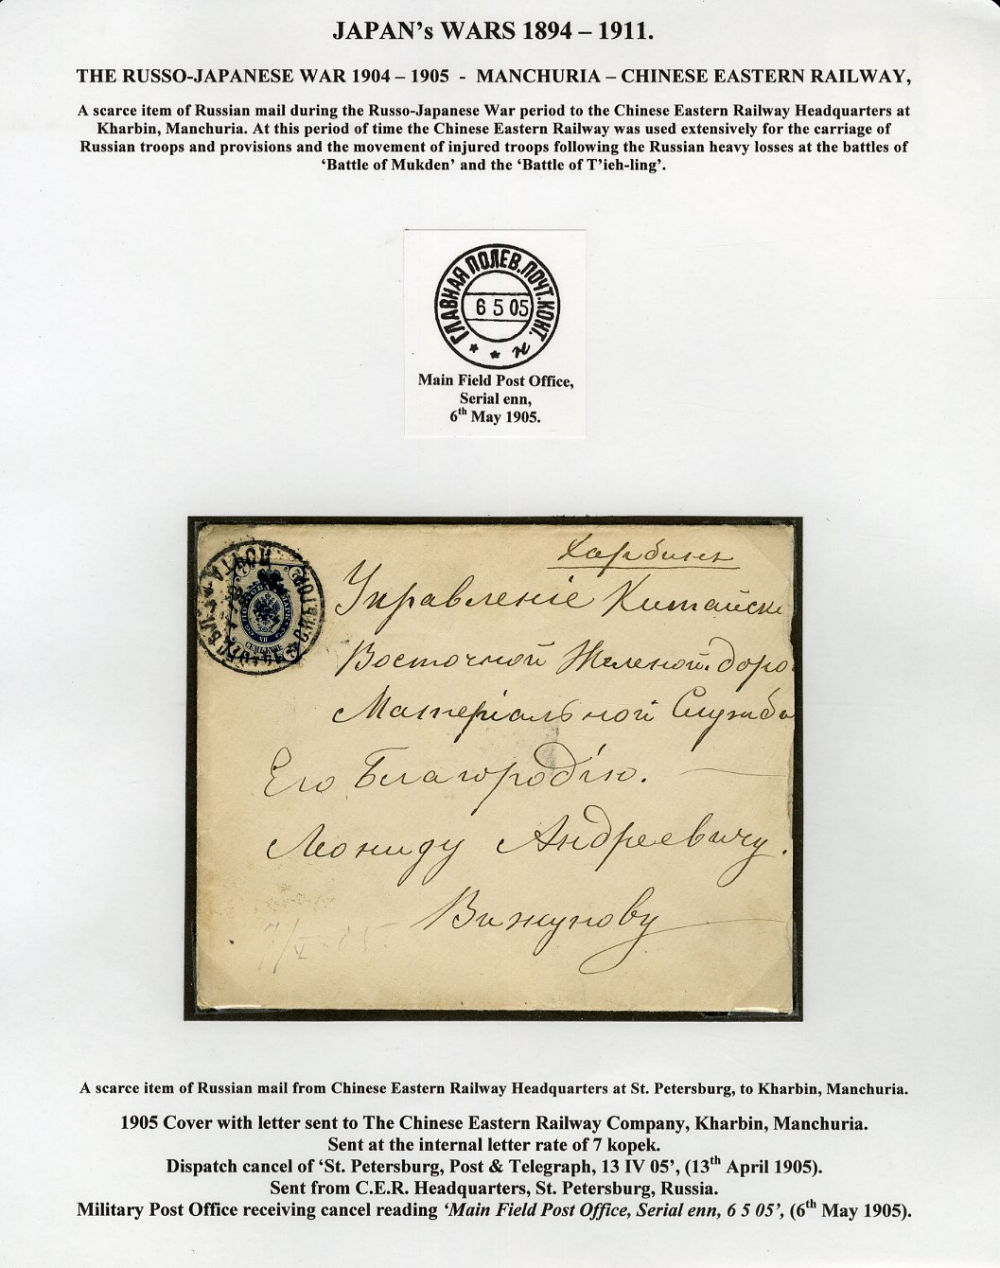 JAPAN's WARS 1894 – 1911.
THE RUSSO-JAPANESE WAR 1904 – 1905 - MANCHURIA – CHINESE EASTERN RAILWAY,
A scarce item of Russian mail during the Russo-Japanese War period to the Chinese Eastern Railway Headquarters at
Kharbin, Manchuria. At this period of time the Chinese Eastern Railway was used extensively for the carriage of
Russian troops and provisions and the movement of injured troops following the Russian heavy losses at the battles of
‘Battle of Mukden’ and the ‘Battle of T'ieh-ling’.
ГЛАВНАЯ ПОЛЕВ. ПОЧТ. КОНТ.
6 5 05
Main Field Post Office,
Serial enn,
6th May 1905.
Харбинъ
Управленіе Китайск
Восточной Желеной доро
Матеріальной Службы
Его Благородію.
Леониду Андреевичу.
Вижунову
ПОЧТА
A scarce item of Russian mail from Chinese Eastern Railway Headquarters at St. Petersburg, to Kharbin, Manchuria.
1905 Cover with letter sent to The Chinese Eastern Railway Company, Kharbin, Manchuria.
Sent at the internal letter rate of 7 kopek.
Dispatch cancel of ‘St. Petersburg, Post & Telegraph, 13 IV 05’, (13th April 1905).
Sent from C.E.R. Headquarters, St. Petersburg, Russia.
Military Post Office receiving cancel reading ‘Main Field Post Office, Serial enn, 6 5 05’, (6th May 1905).